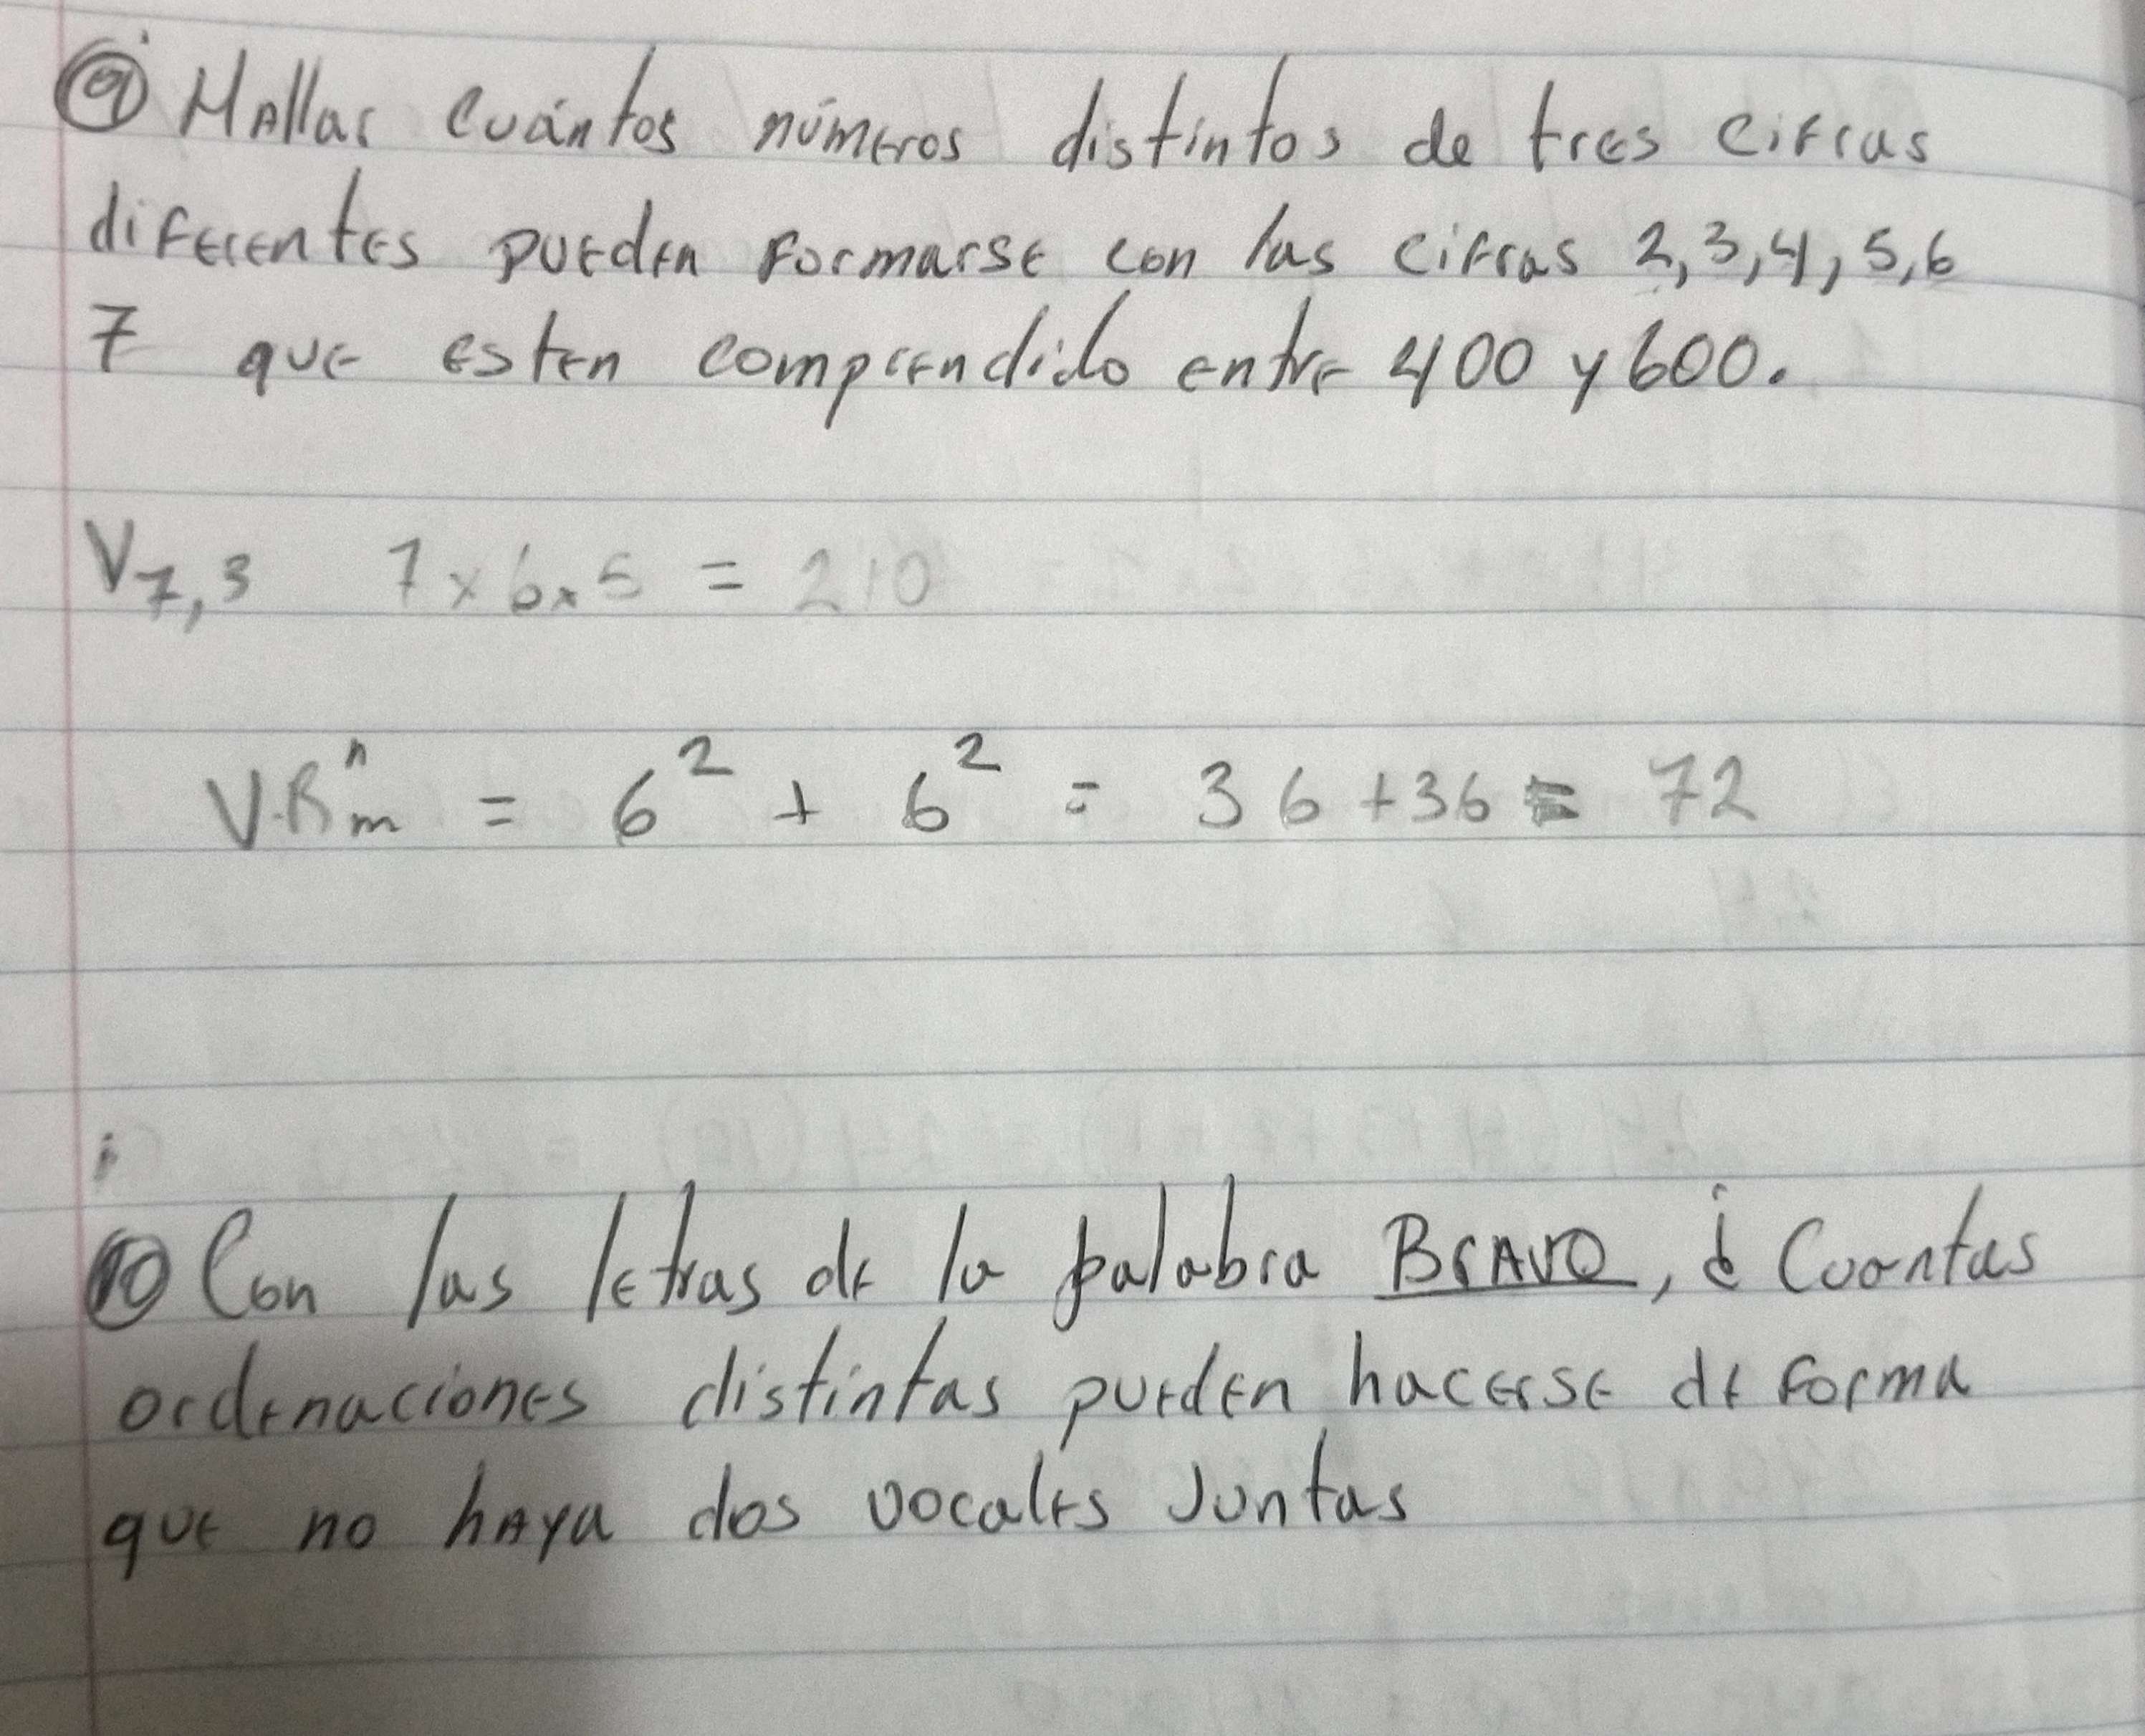 ⑨ Hallar cuántos números distintos de tres cifras
diferentes pueden formarse con las cifras 2,3,4,5,6
7 que esten comprendido entre 400 y 600.
V7,3 7x6x5 = 210
V.Rⁿm = 6² + 6² = 36+36 = 72
⑩ Con las letras de la palabra BrAvO, ¿Cuantas
ordenaciones distintas pueden hacerse de forma
que no haya dos vocales Juntas